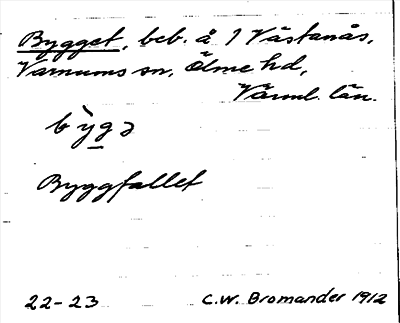 Bygget, beb. å 1 Västanås,
Varnums sn, Ölme hd,
Värml. län.
bỳgə
Byggfallet
22-23 C.W. Bromander 1912